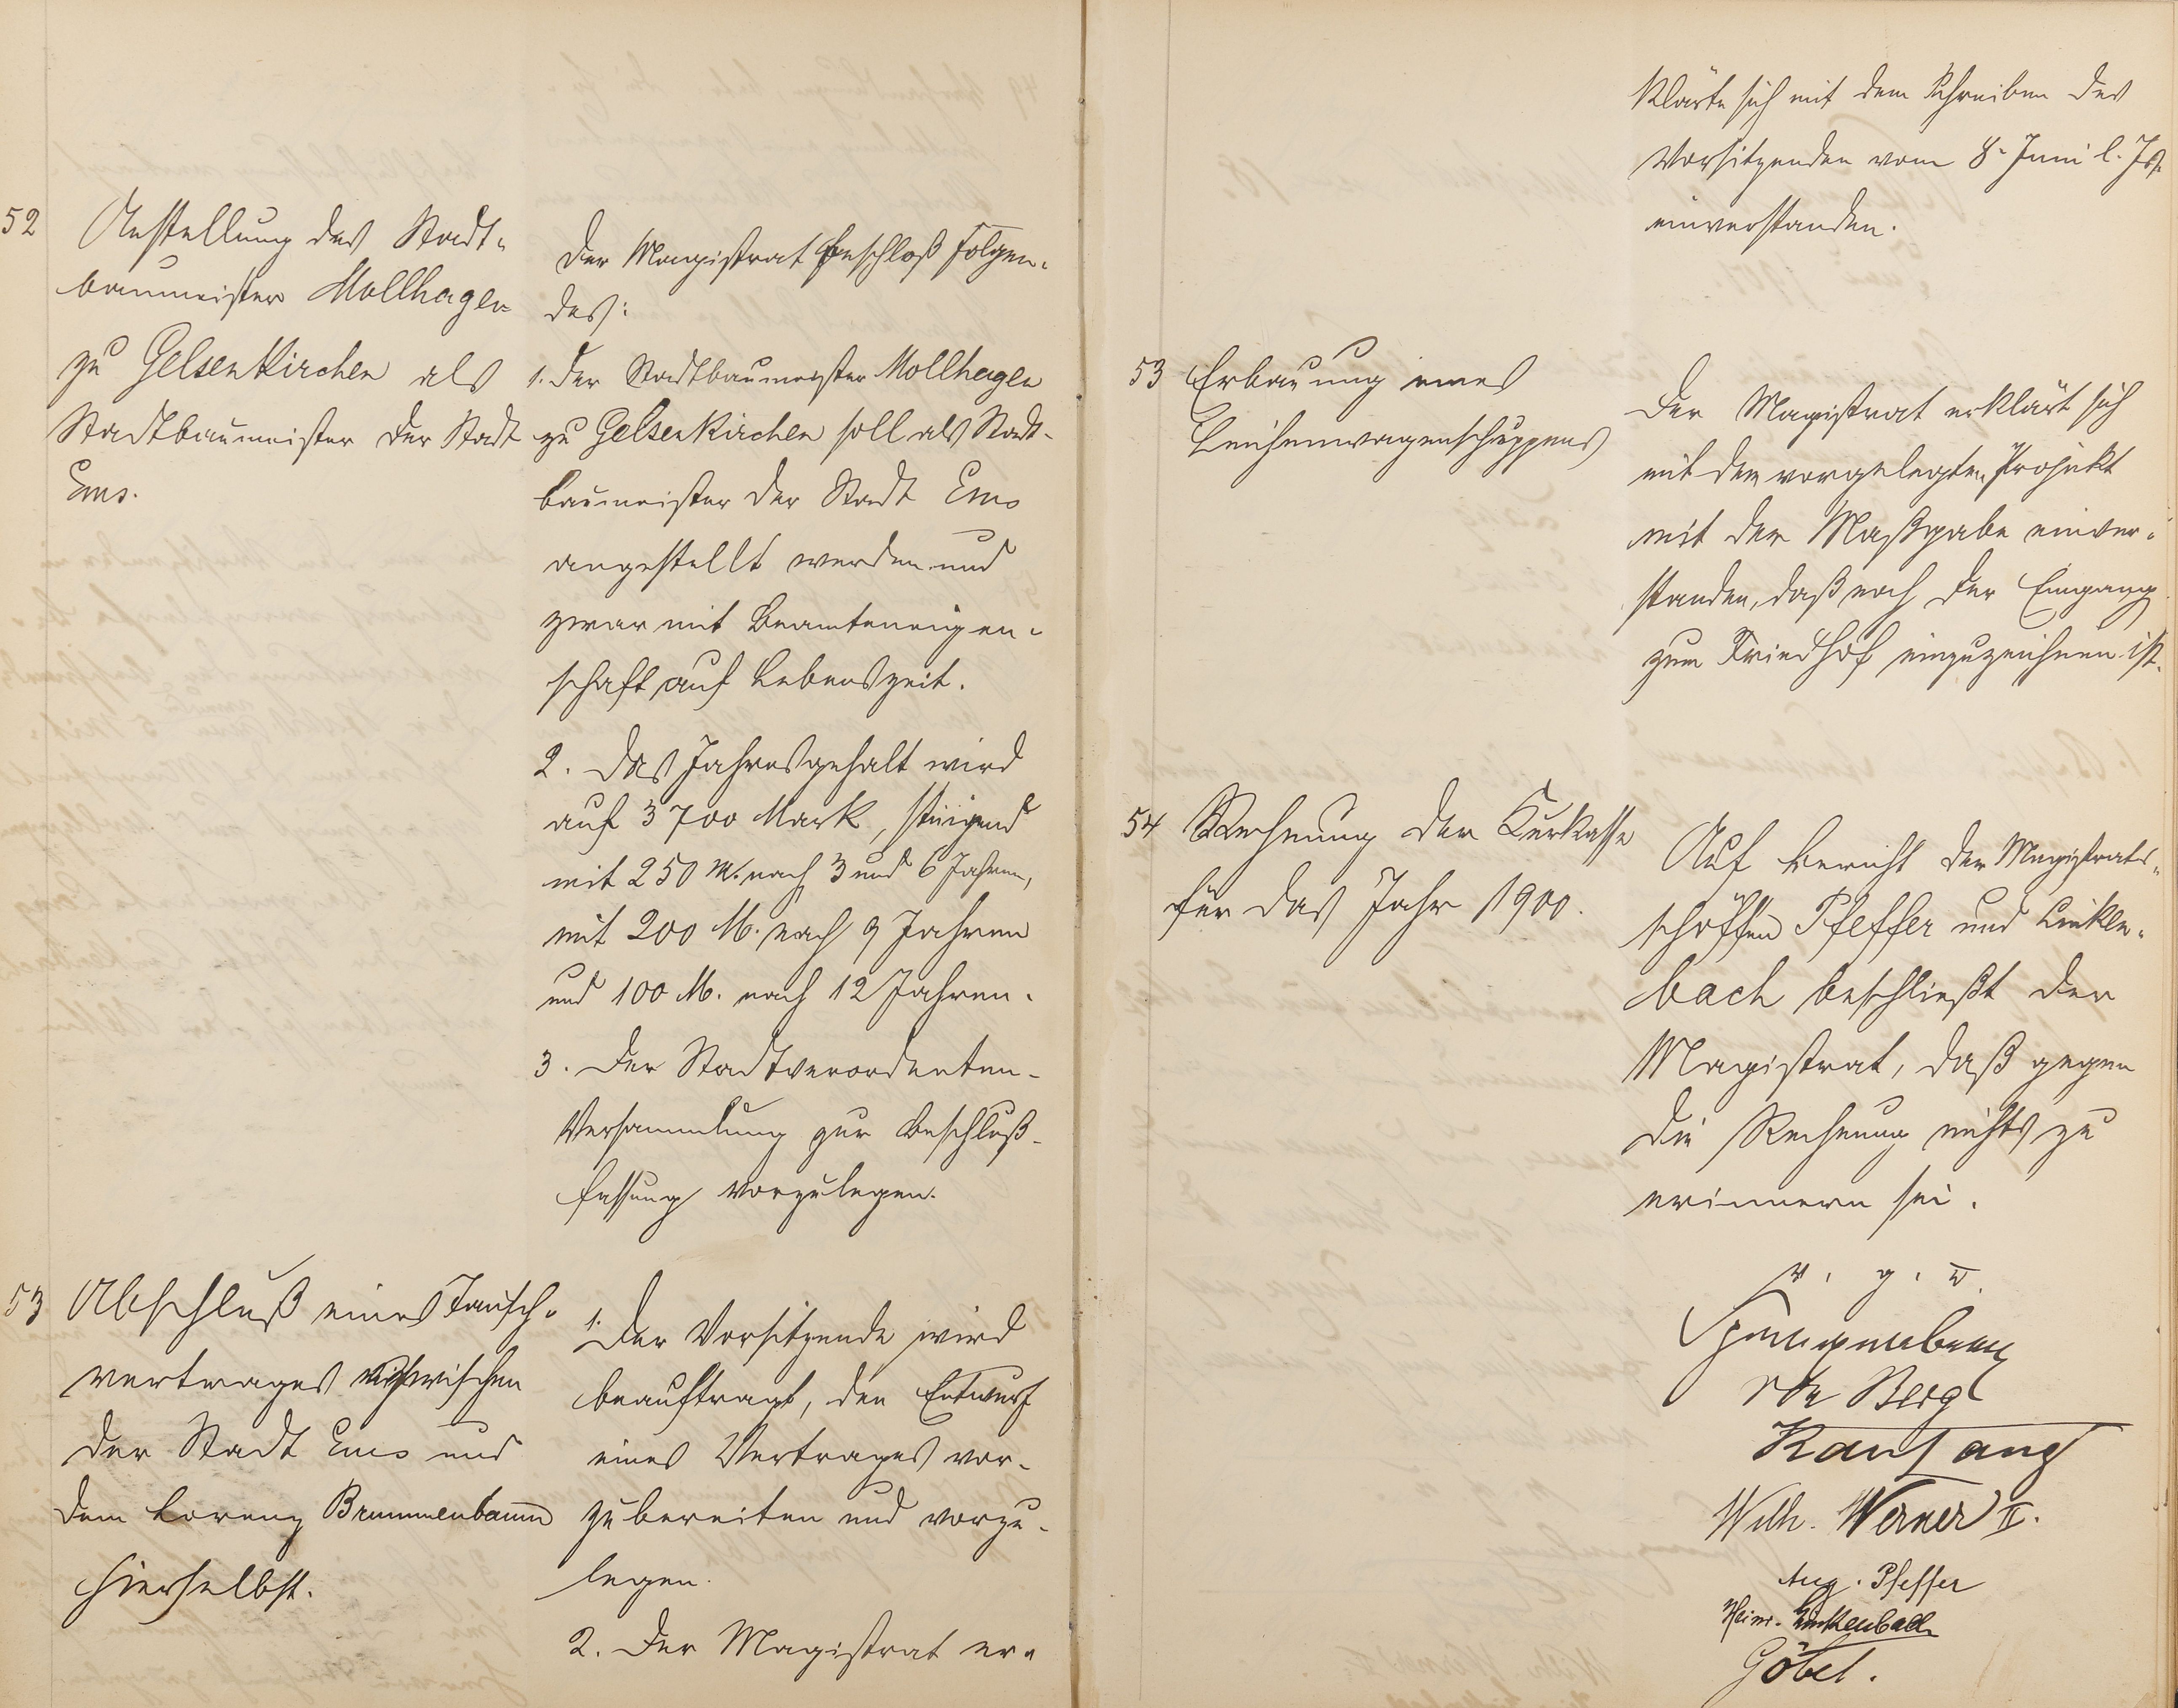 52
Anstellung des Stadt-
baumeisters Mollhagen
zu Gelsenkirchen als
Stadtbaumeister der Stadt
Ems.
Der Magistrat beschloß Folgen-
des:
1. Der Stadtbaumeister Mollhagen
zu Gelsenkirchen soll als Stadt-
baumeister der Stadt Ems
angestellt werden und
zwar mit Beamteneigen-
schaft auf Lebenszeit.
2. Das Jahresgehalt wird
auf 3700 Mark, steigend
mit 250 M. nach 3 und 6 Jahren,
mit 200 M. nach 9 Jahren
und 100 M. nach 12 Jahren.
3. Der Stadtverordneten-
Versammlung zur Beschluß-
fassung vorzulegen.
53
Abschluß eines Tausch-
vertrages zwischen
der Stadt Ems und
dem Lorenz Brummenbaum
hierselbst.
1. Der Vorsitzende wird
beauftragt, den Entwurf
eines Vertrages vor-
zubereiten und vorzu-
legen.
2. Der Magistrat er-
klärte sich mit dem Schreiben des
Vorsitzenden vom 8. Juni l. Js.
einverstanden.
53
Erbauung eines
Leichenwagenschuppens
Der Magistrat erklärt sich
mit dem vorgelegten Projekt
mit der Maßgabe einver-
standen, daß noch der Eingang
zum Friedhof einzuzeichnen ist.
54
Rechnung der Kurkasse
für das Jahr 1900.
Auf Bericht der Magistrats-
schöffen Pfeffer und Linken-
bach beschließt der
Magistrat, daß gegen
die Rechnung nichts zu
erinnern sei.
v. g. u.
Spangenberg
Berg
Kauf
Wilh. Werner II.
Aug. Pfeffer
Heinr. Linkenbach
Göbel.